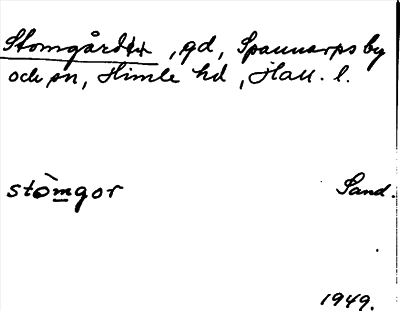 Stomgården, gd, Spannarps by
och sn, Himle hd, Hall. l.
stòmgor Sand.
1949.